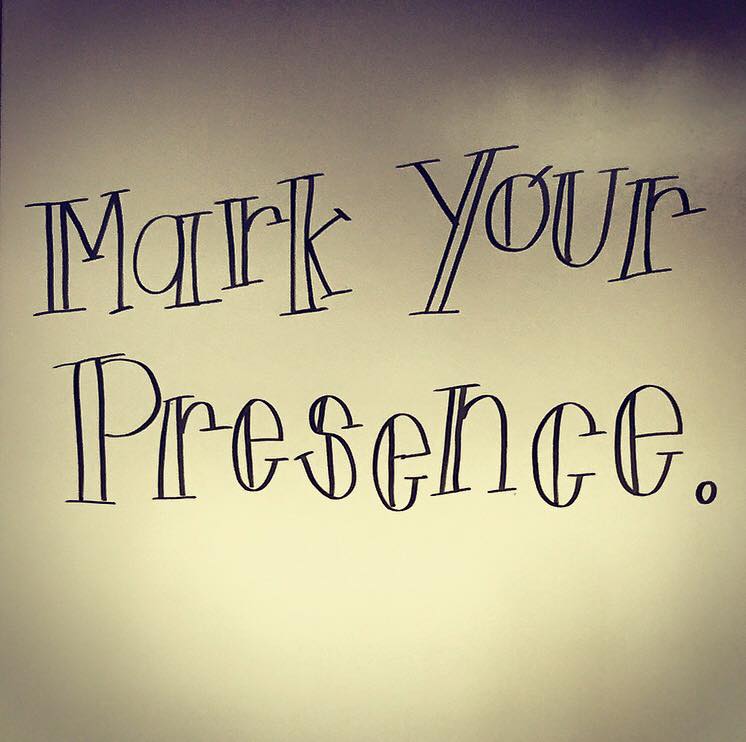 Mark Your
Presence.